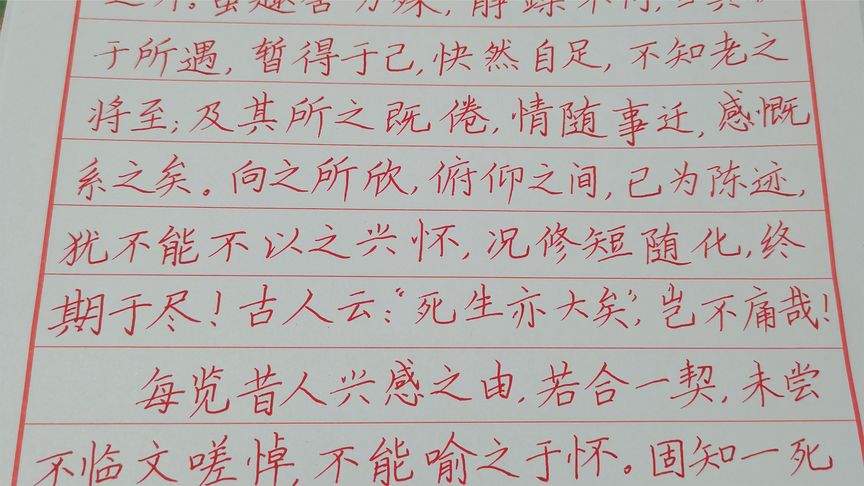 之外。虽趣舍万殊，静躁不同，
于所遇，暂得于己，快然自足，不知老之
将至；及其所之既倦，情随事迁，感慨
系之矣。向之所欣，俯仰之间，已为陈迹，
犹不能不以之兴怀，况修短随化，终
期于尽！古人云：“死生亦大矣”，岂不痛哉！
每览昔人兴感之由，若合一契，未尝
不临文嗟悼，不能喻之于怀。固知一死